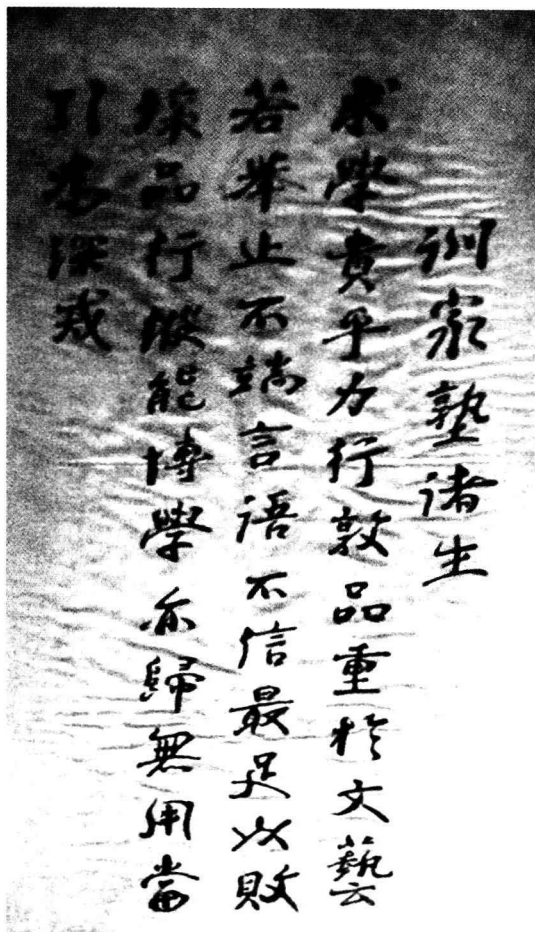 訓家塾諸生
求學貴乎力行敦品重於文藝
若舉止不端言語不信最足以敗
壞品行縱能博學亦歸無用當
引為深戒